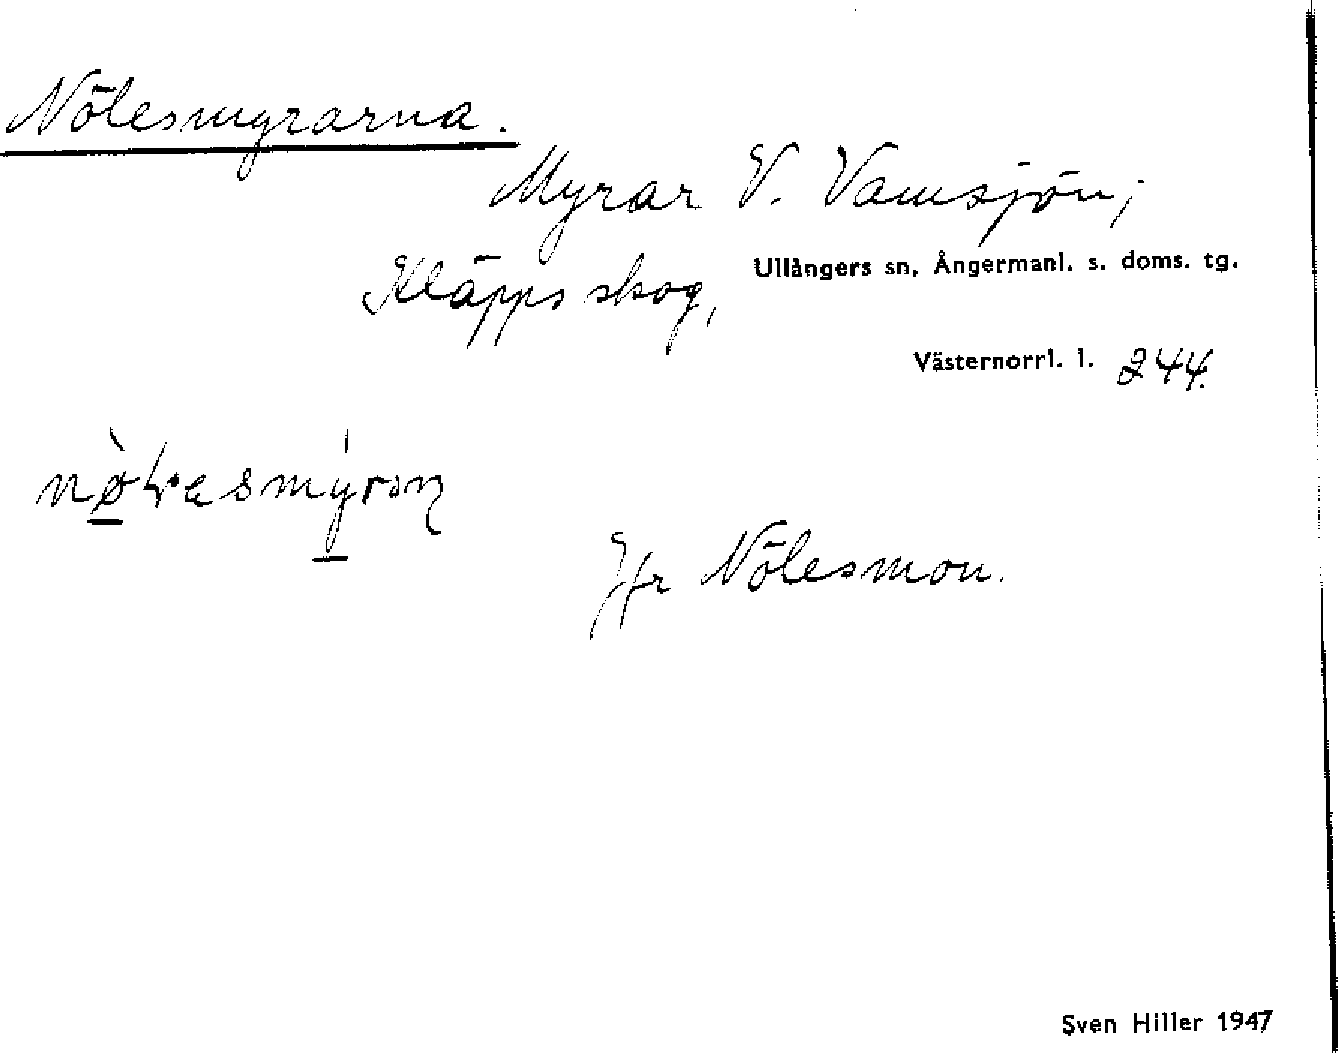 Nölesmyrarna.
Myrar V. Vamsjön;
Kläppsskog,
Ullångers sn, Ångermanl. s. doms. tg.
Västernorrl. l. 244.
Jfr Nölesmon.
Sven Hiller 1947